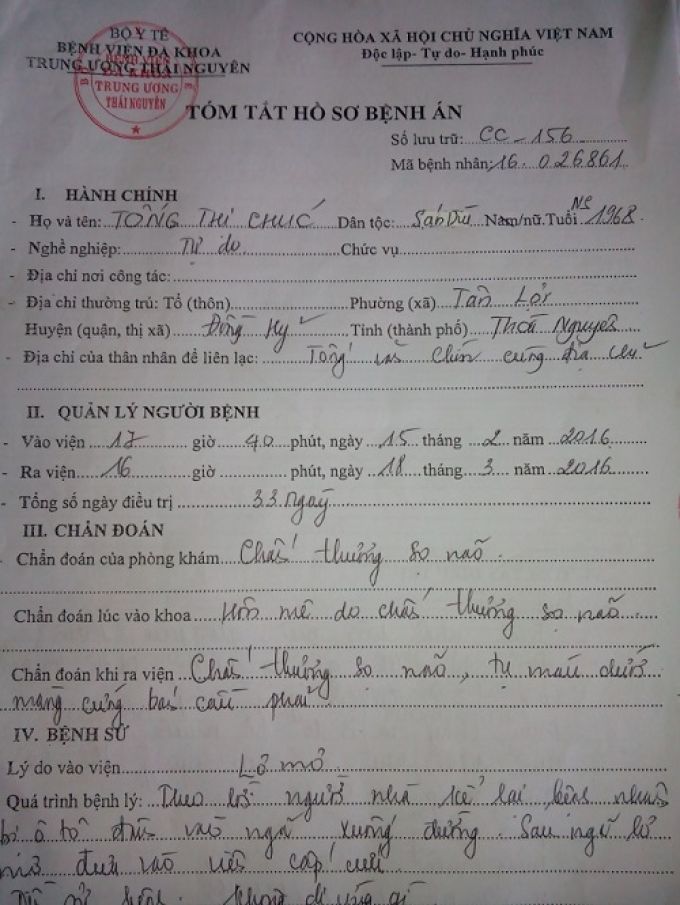 BỘ Y TẾ
BỆNH VIỆN ĐA KHOA
TRUNG ƯƠNG THÁI NGUYÊN
BỆNH VIỆN
ĐA KHOA
TRUNG ƯƠNG
THÁI NGUYÊN
CỘNG HÒA XÃ HỘI CHỦ NGHĨA VIỆT NAM
Độc lập- Tự do- Hạnh phúc
TÓM TẮT HỒ SƠ BỆNH ÁN
Số lưu trữ: CC - 156
Mã bệnh nhân: 16. 026861
I. HÀNH CHÍNH
- Họ và tên: TỐNG THỊ CHÚC Dân tộc: Sán Dìu Nam/nữ. Tuổi 1968
- Nghề nghiệp: Tự do Chức vụ
- Địa chỉ nơi công tác:
- Địa chỉ thường trú: Tổ (thôn) Phường (xã) Tân Lợi
Huyện (quận, thị xã) Đồng Hỷ Tỉnh (thành phố) Thái Nguyên
- Địa chỉ của thân nhân để liên lạc: Tống cùng địa chỉ
II. QUẢN LÝ NGƯỜI BỆNH
- Vào viện 17 giờ 40 phút, ngày 15 tháng 2 năm 2016
- Ra viện 16 giờ phút, ngày 18 tháng 3 năm 2016
- Tổng số ngày điều trị 33 ngày
III. CHẨN ĐOÁN
- Chẩn đoán của phòng khám Chấn thương sọ não.
Chẩn đoán lúc vào khoa Hôn mê do chấn thương sọ não.
Chẩn đoán khi ra viện Chấn thương sọ não, tụ máu dưới
màng cứng bán cầu phải
IV. BỆNH SỬ
Lý do vào viện Lơ mơ
Quá trình bệnh lý: Theo lời người nhà kể lại, bệnh nhân
bị ô tô đâm vào ngã xuống đường. Sau ngã lơ
mơ đưa vào viện cấp cứu